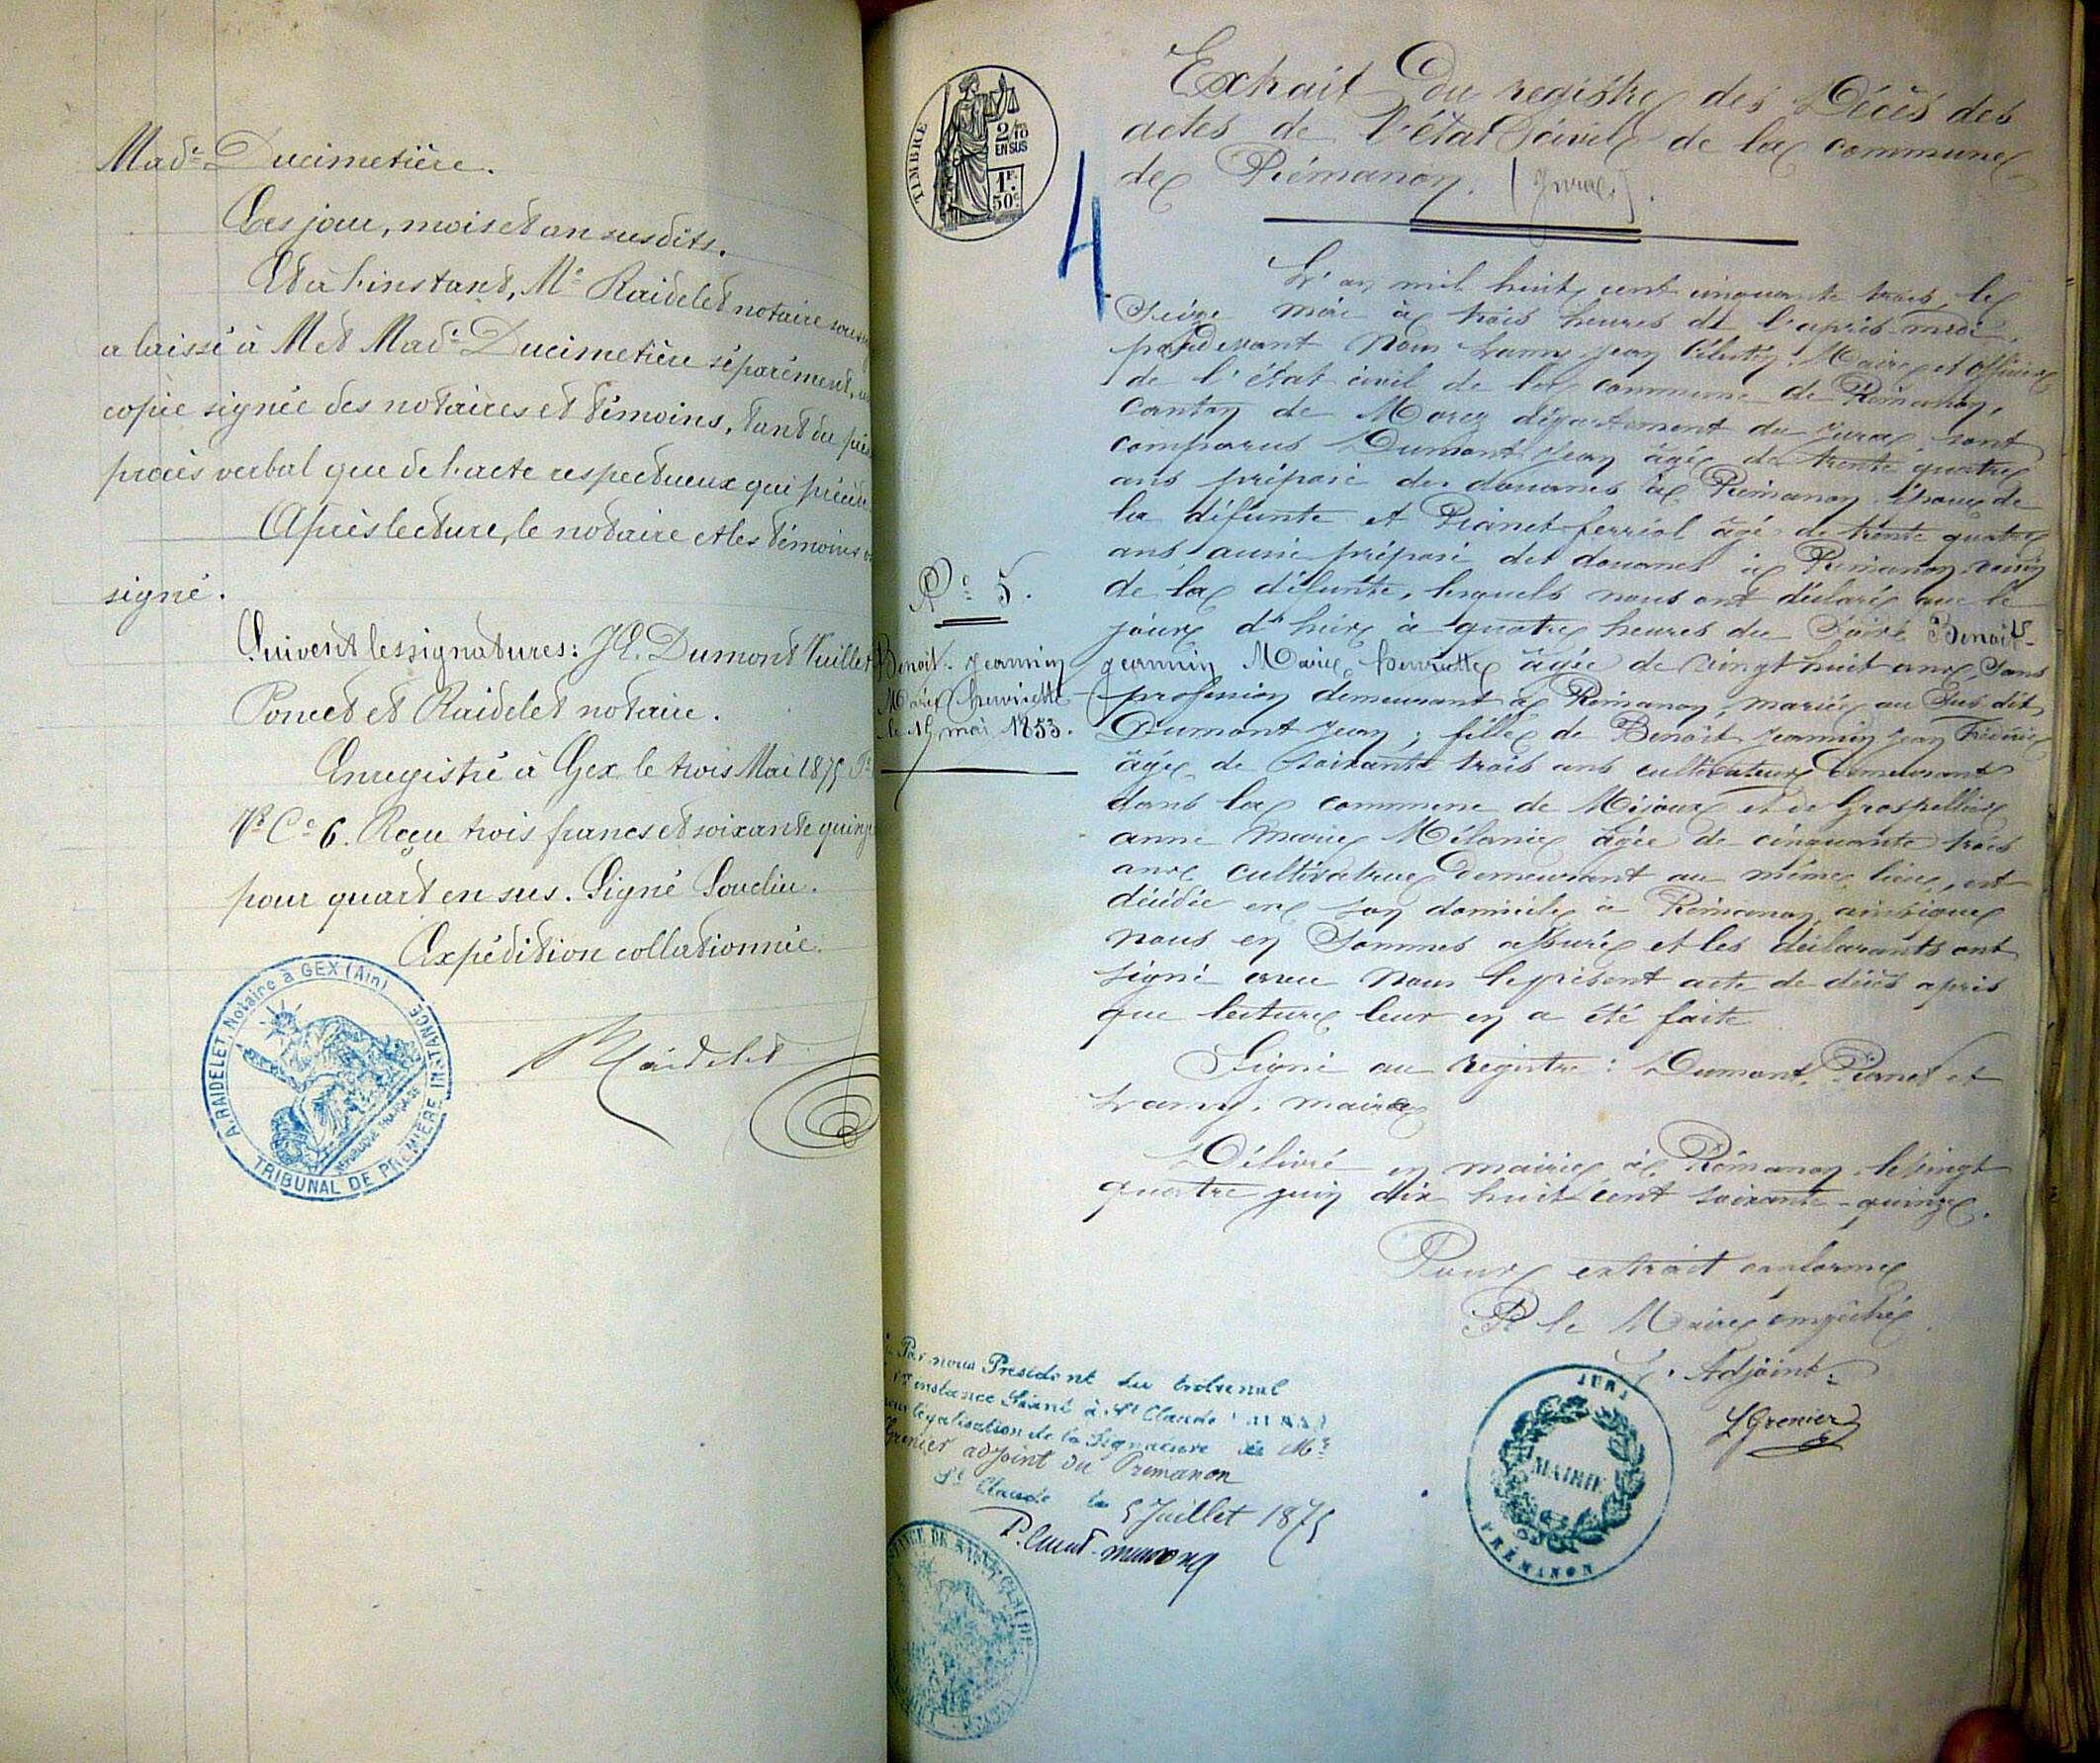 Made Ducimetière.
Les jour, mois et an susdits.
Et à l'instant, Me Raidelet notaire
a laissé à M et Made Ducimetière séparément,
copie signée des notaires et témoins, tant du
procès verbal que de l'acte respectueux qui précède
Après lecture, le notaire et les témoins
signé.
Suivent les signatures: JE. Dumont Vuillet
Poncet et Raidelet notaire.
Enregistré à Gex le trois Mai 1875
Vo Ce 6. Reçu trois francs et soixante quinze
pour quart en sus. Signé
Expédition collationnée.
Raidelet
A. RAIDELET, Notaire à GEX (Ain)
TRIBUNAL DE PREMIÈRE INSTANCE
RÉPUBLIQUE FRANÇAISE
TIMBRE
2/10
EN SUS
1F.
50c
4
Extrait du registre des Décès des
actes de l'état civil de la commune
de Prémanon. (Jura).
L'an mil huit cent cinquante trois, le
Seize mai à trois heures de l'après-midi,
pardevant Nous Lamy Jean Célestin, Maire et officier
de l'état civil de la commune de Prémanon,
Canton de Morez département du Jura, sont
comparus Dumont Jean âgé de trente quatre
ans préposé des douanes à Prémanon, époux de
la défunte et Pianet ferréol âgé de trente quatre
ans aussi préposé des douanes à Prémanon voisin
de la défunte, lesquels nous ont déclaré que le
jour d'hier à quatre heures du Soir Benoit-
Jeannin Marie henriette âgée de vingt huit ans, Sans
profession demeurant à Prémanon, mariée au Sus dit
Dumont Jean; fille de Benoit Jeannin Jean Frédéric
âgé de Soixante trois ans cultivateur demeurant
dans la commune de Mijoux et de Grospellier
anne Marie Mélanie âgée de cinquante trois
ans cultivatrice demeurant au même lieu, est
décédée en son domicile à Prémanon, ainsi que
nous en Sommes assuré et les déclarants ont
signé avec Nous le présent acte de décès après
que lecture leur en a été faite
No 5.
Benoit-Jeannin
Marie henriette
le 15 mai 1853.
Signé au registre: Dumont, Pianet et
Lamy, maire
Délivré en mairie à Prémanon, le vingt
quatre juin dix huit cent soixante-quinze.
Pour extrait conforme
Pr le Maire empêché
L'Adjoint:
LGrenier
JURA
MAIRIE
PRÉMANON
Par nous President du tribunal
1re instance Séant à St Claude (JURA)
pour légalisation de la Signature de Mr
Grenier adjoint de Prémanon
St Claude le 5 Juillet 1875